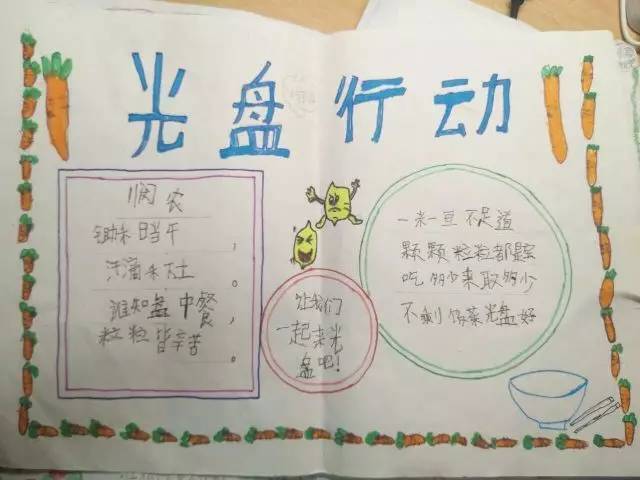 光盘行动
悯农
锄禾日当午，
汗滴禾下土。
谁知盘中餐，
粒粒皆辛苦。
让我们
一起来光
盘吧！
一米一豆不足道
颗颗粒粒都是
吃多少来取多少
不剩饭菜光盘好